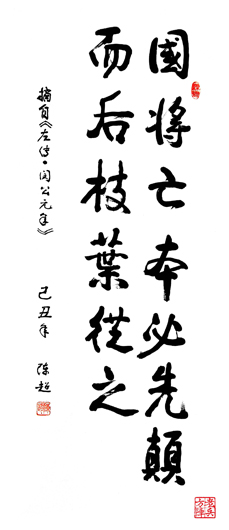 國將亡本必先顛
而后枝葉從之
摘自《左传·闵公元年》
己丑年 陈超